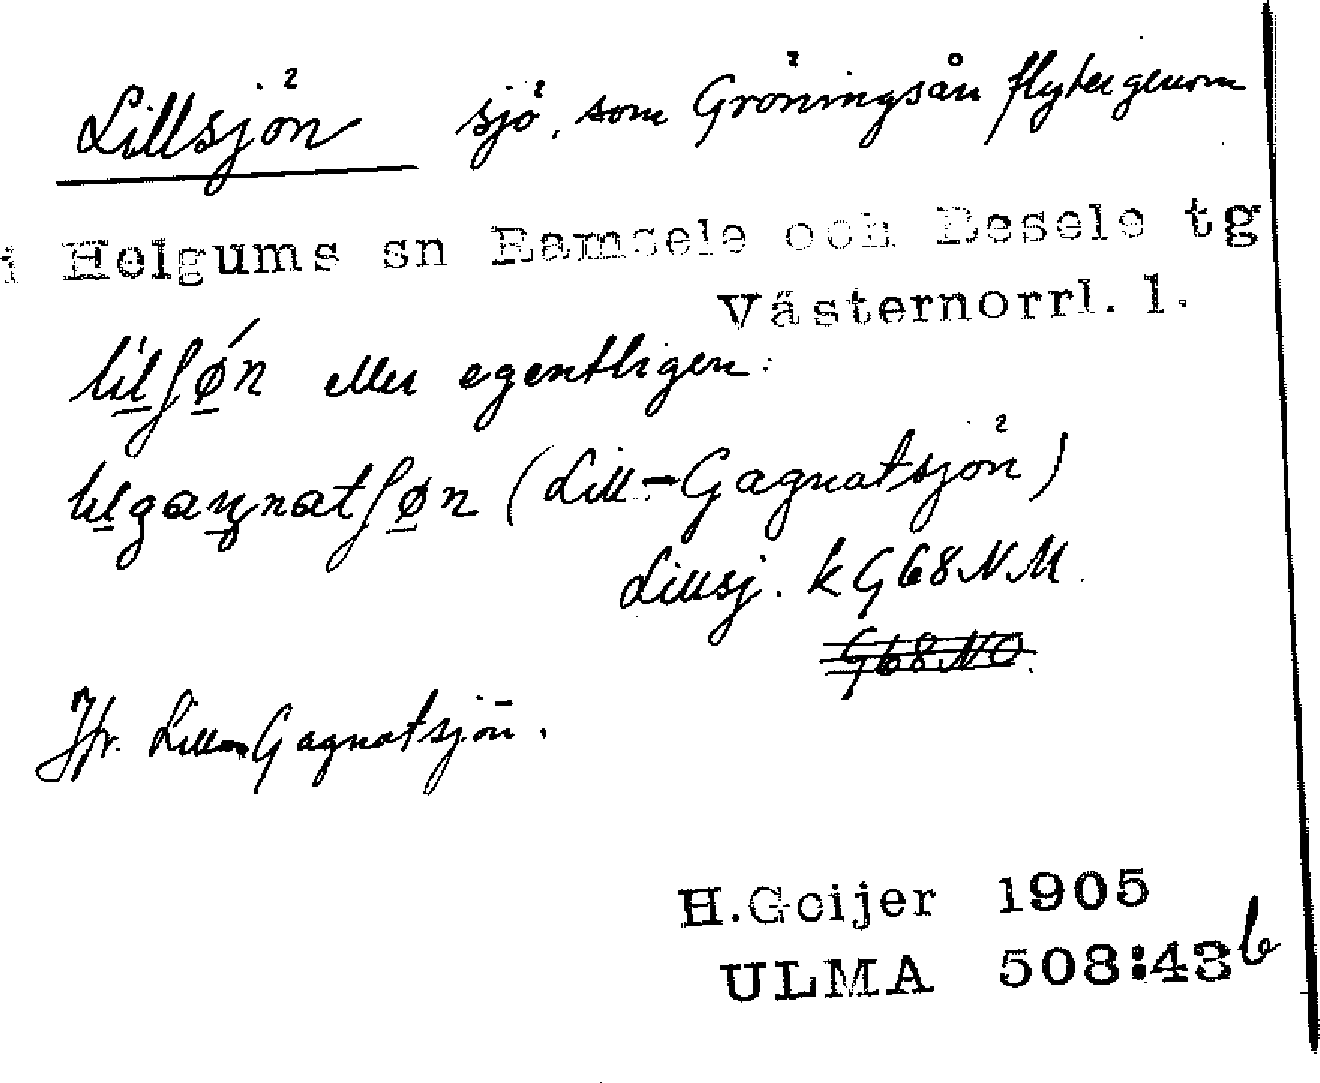 Lillsjön sjö, som Gröningsån flyter genom
i Helgums sn Ramsele och Resele tg
Västernorrl. l.
lilʃøn eller egentligen:
lilgaŋnatʃøn (Lill-Gagnatsjön)
Lillsj. k G68NM.
G68NO.
Jfr. Lill-Gagnatsjön.
H.Geijer 1905
ULMA 508:43b